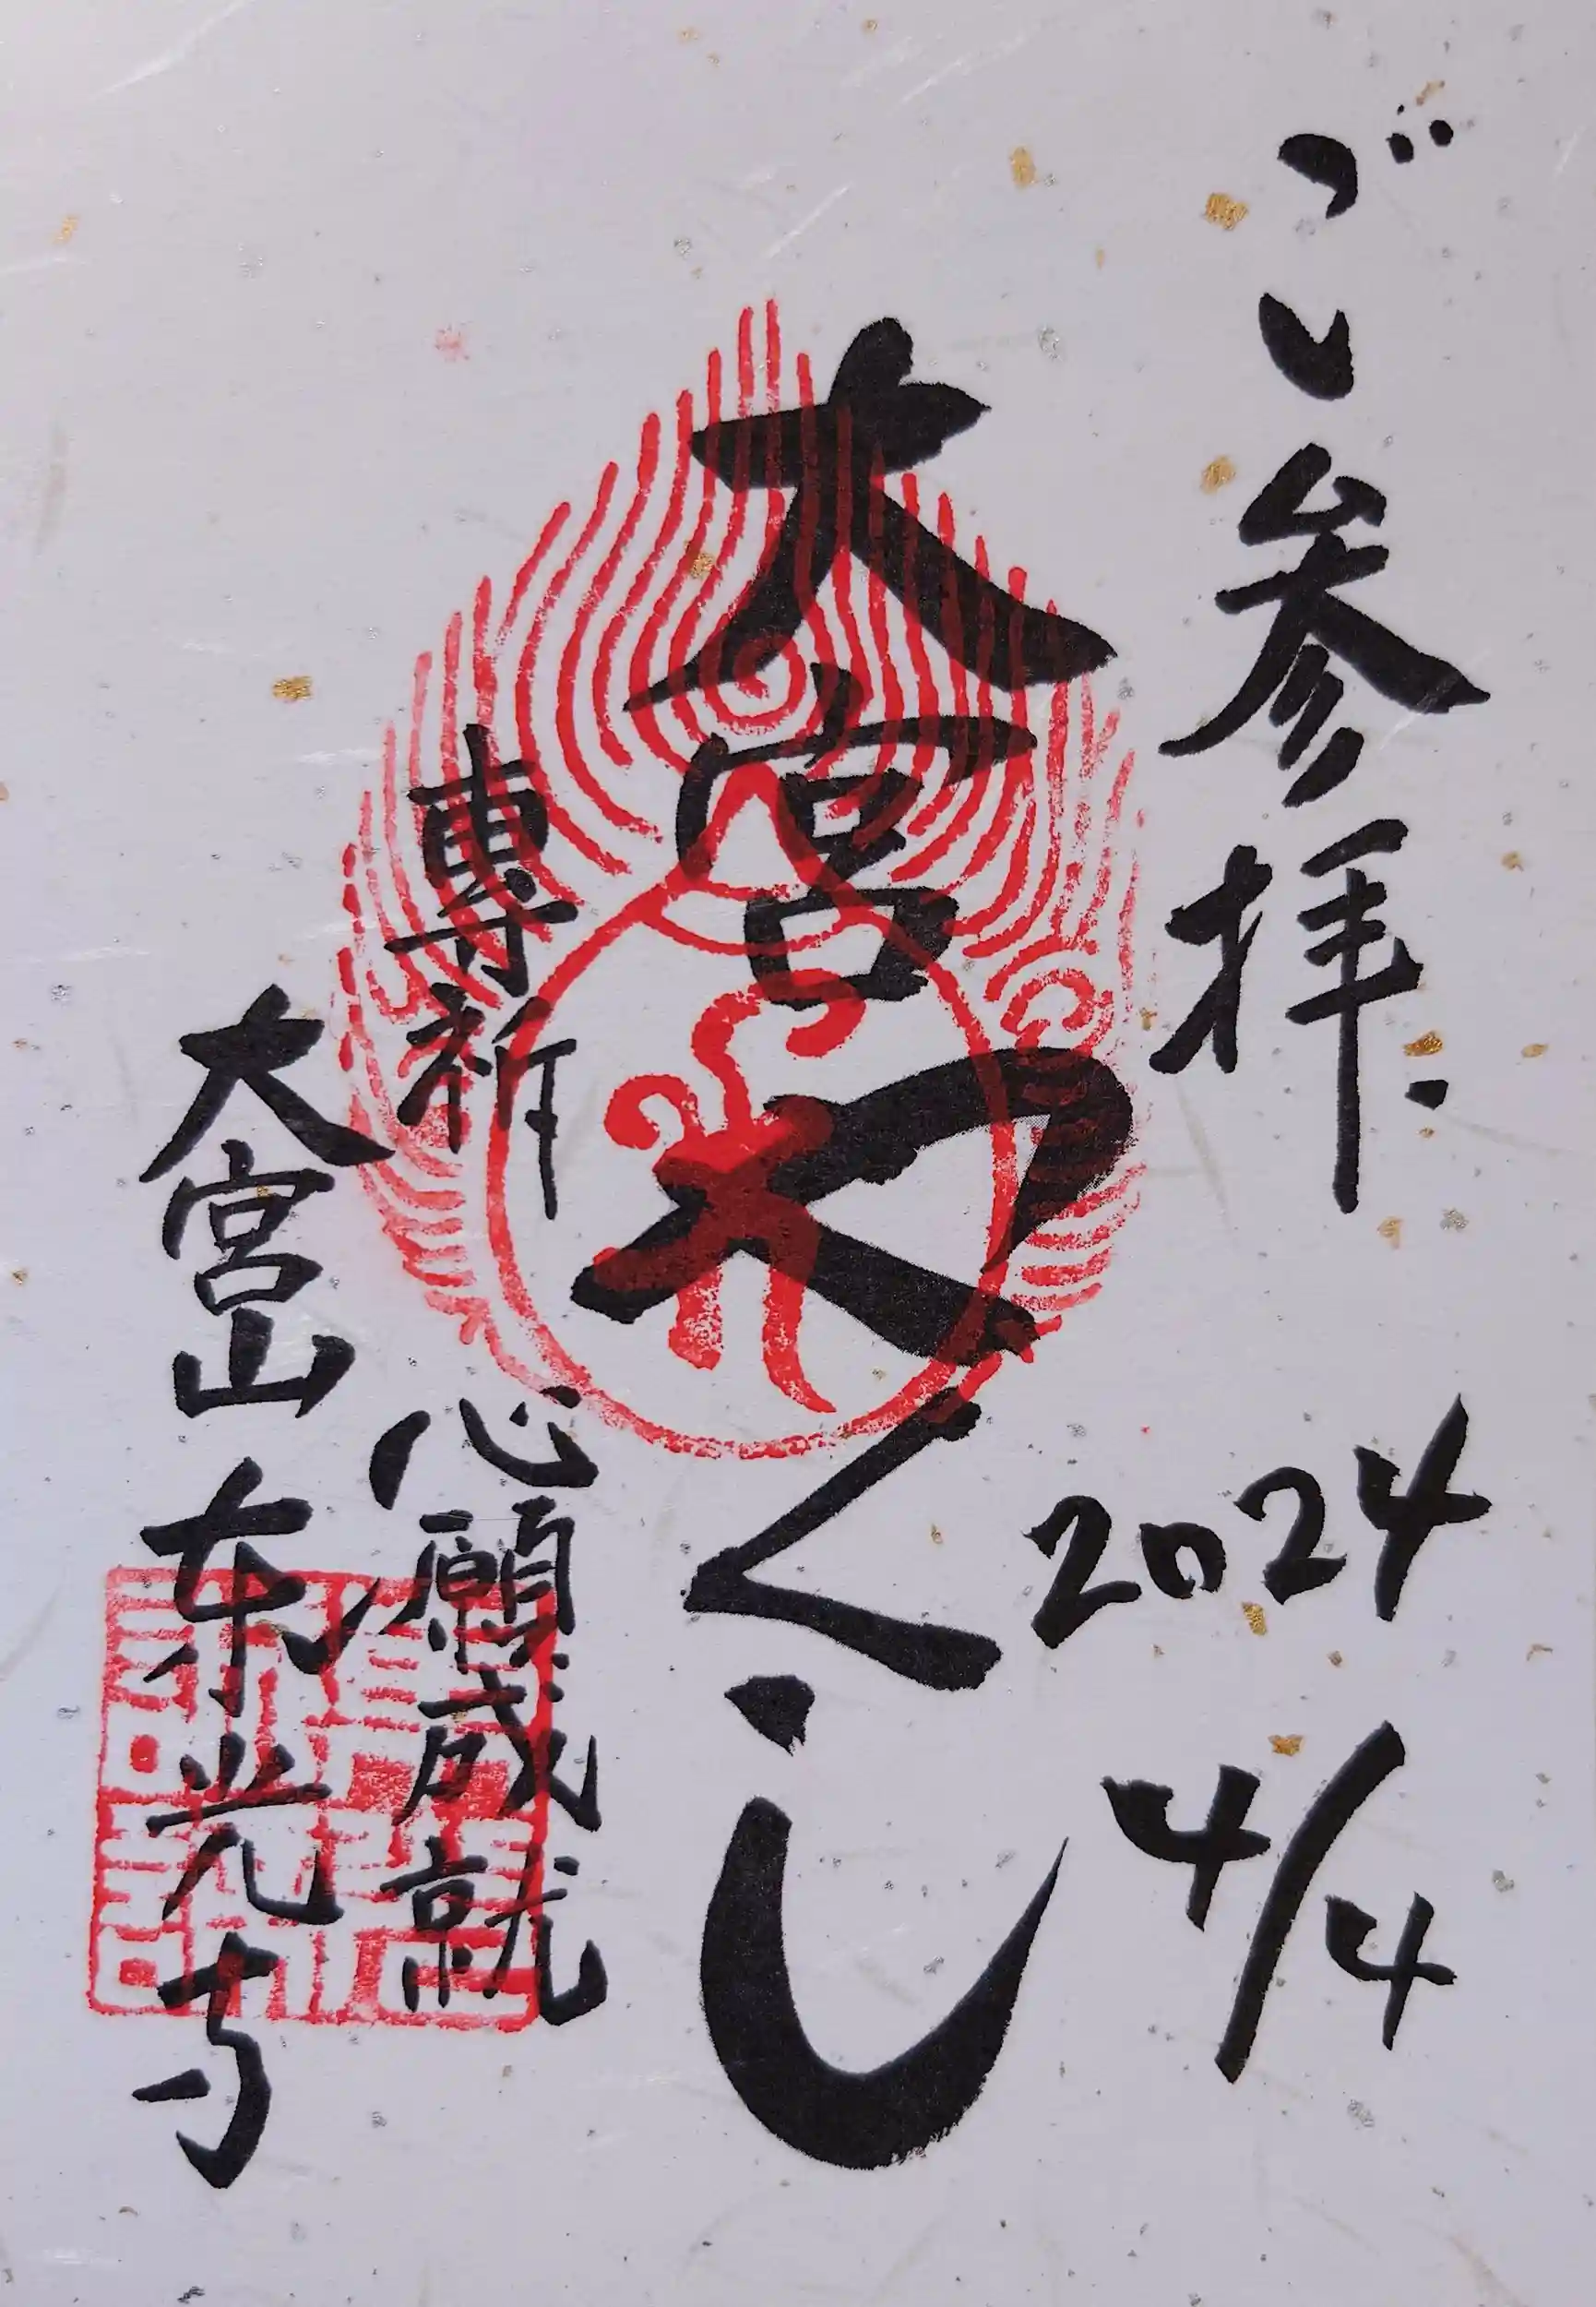 ご参拝
2024
4/4
大宮やくし
專祈 心願成就
大宮山 東光寺